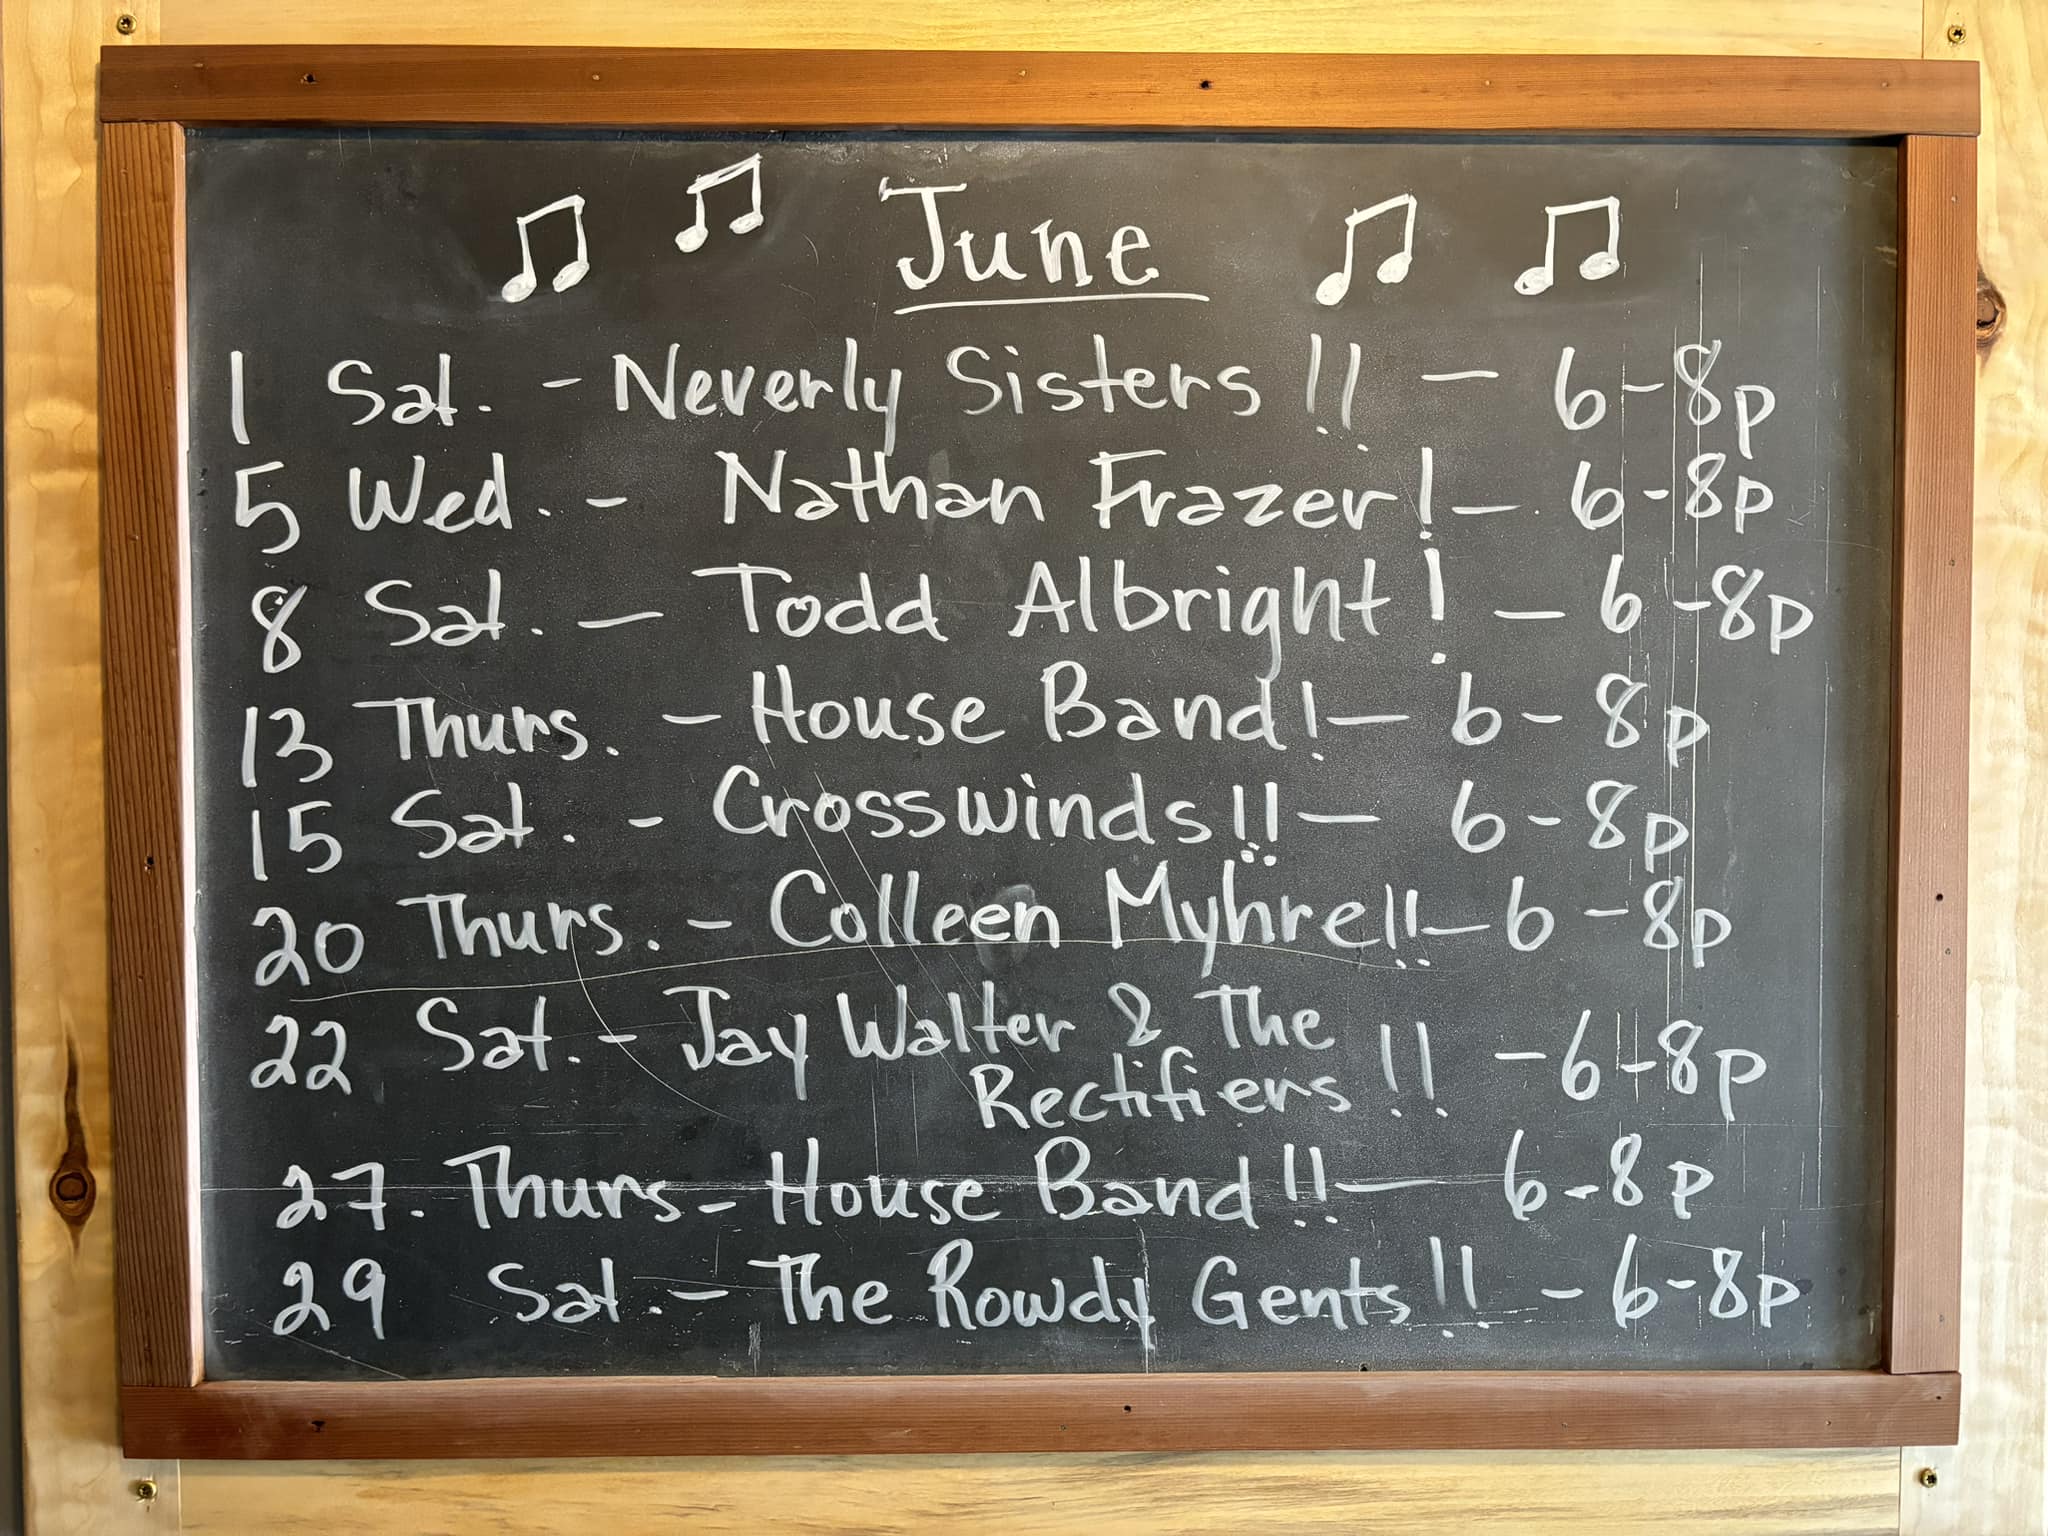 June
1 Sat. - Neverly Sisters !! - 6-8p
5 Wed. - Nathan Frazer! - 6-8p
8 Sat. - Todd Albright! - 6-8p
13 Thurs. - House Band! - 6-8p
15 Sat. - Crosswinds!! - 6-8p
20 Thurs. - Colleen Myhre!! - 6-8p
22 Sat. - Jay Walter & The
Rectifiers !! - 6-8p
27. Thurs - House Band!! - 6-8p
29 Sat. - The Rowdy Gents!! - 6-8p